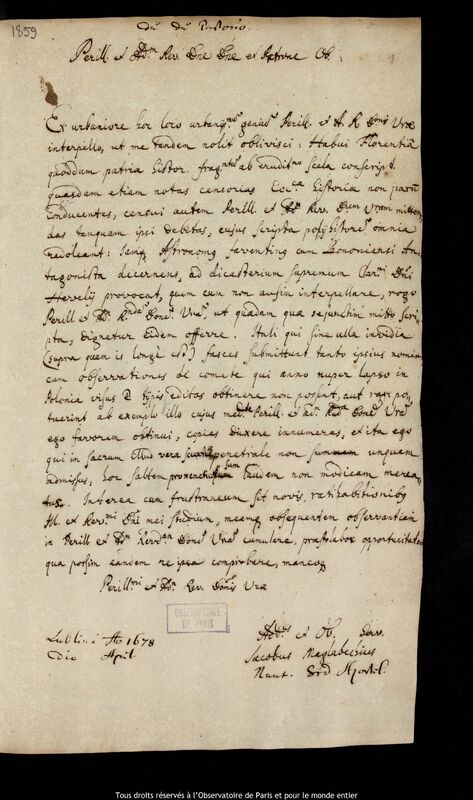 1859
Perill. et Adm Rev. Dne Dne et Patrone Ob.
Ex urbaniore hoc loco genium Perill. et A. R. Donis Vrae
interpello, ut me tandem nolit oblivisci: Habui Florentia
quoddam patria histor. ab erudit.mo Scala conscript.
quasdam etiam notas censorias Ecc.ca historia non parum
conducentes, censui autem Perill. et Rev. Dnem Vram mitten
das tanquam ipsi debitas, cujus scripta polyhistorem omnia
redoleant: semp Astronomg ferventing cum Bononiensi An
tagonista decernens, ad dicasterium supremum Clar.mi Dni
Hevelij provocat, quem cum non ausim interpellare, rogo
Perill et Ad. Done. Vra, ut quadam quae sepuschim mitto scri
pta, dignetur eidem offerre. Itali qui sine ulla invidia
(supra quam is longè est) fasces submittunt tanto ipsius nomini
cum observationes de cometa qui anno nuper lapso in
Polonia visus typis editas obtinere non possent, aut rari po,,
tuerint ab exemplo illo cujus Perill. et ad. Done Vra
ego favorem obtinui, copias duxere innumeras, et ita ego
qui in sacrum illius vera penetrale non unquam
admissus, hoc saltem tandem non modicam merea
tur. Interea cum frustraneum sit novis, ratihabitionibq
Ill. et Rev.mi Dni mei studium, meamq obsequentem observantiam
in Perill et Adm Done Vrae cumulare, praestolabor opportunitatem
qua possim eandem re ipsa comprobare, maneoq
Perill.ri et Adm. Rev. Donis Vrae
OBSERVATOIRE
DE PARIS
Lublini Ao 1678
Die April.
et Ob. Serv.
Jacobus Meglabechius
Nunt. Ord Apostol.
Tous droits réservés à l'Observatoire de Paris et pour le monde entier